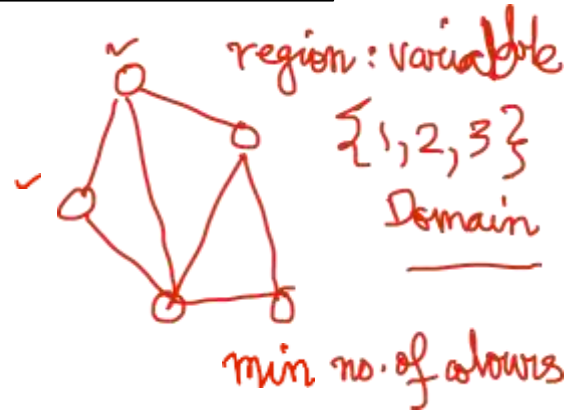 region : variable
{1,2,3}
Domain
min no. of colours